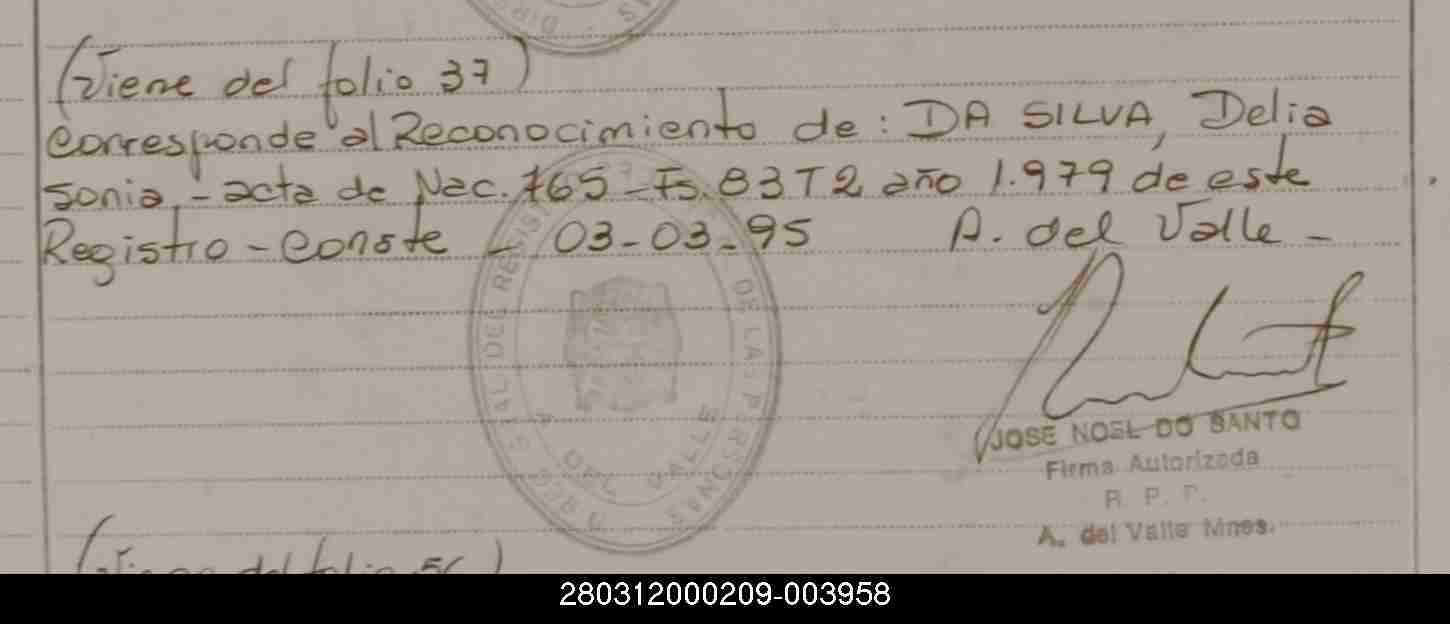 (Viene del folio 37)
Corresponde al Reconocimiento de: DA SILVA, Delia
Sonia, - acta de Nac. 765 - Fs. 83 T2 año 1.979 de este
Registro - Conste - 03-03-95 A. del Valle -
DE LAS PERSONAS
A. DEL VALLE
JOSE NOEL DO SANTO
Firma Autorizada
R. P.
A. del Valle Mnes.
del folio
280312000209-003958